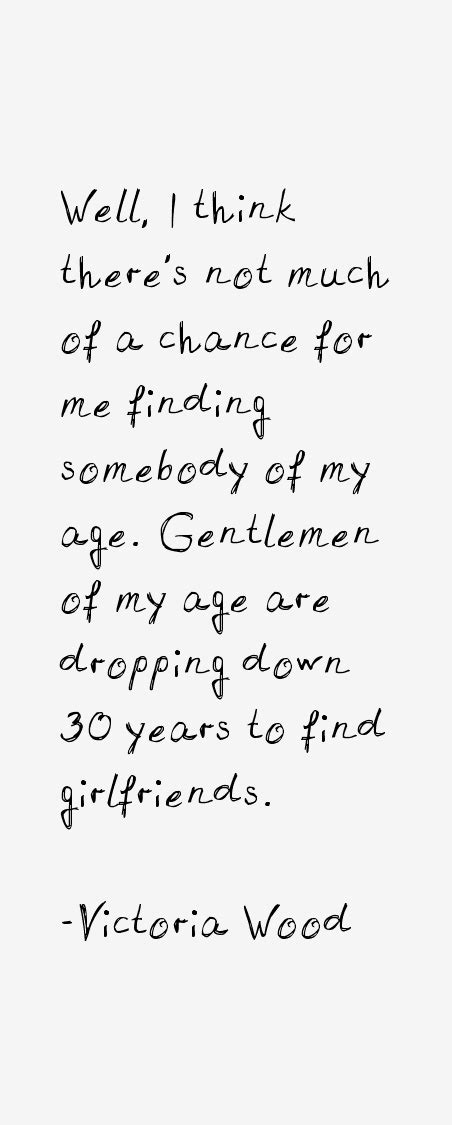 Well, I think
there's not much
of a chance for
me finding
somebody of my
age. Gentlemen
of my age are
dropping down
30 years to find
girlfriends.
-Victoria Wood